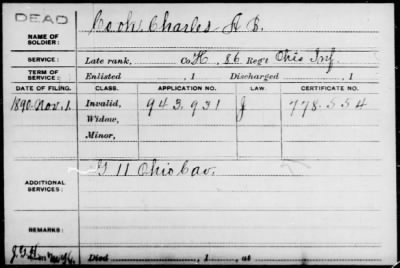 DEAD
NAME OF SOLDIER: Cook, Charles A. B.
SERVICE: Late rank, Co. K, 86 Reg't Ohio Inf.
TERM OF SERVICE: Enlisted , 1 Discharged , 1
DATE OF FILING. CLASS. APPLICATION NO. LAW. CERTIFICATE NO.
1890 Nov. 1. Invalid, 943.931 J 778.554
Widow,
Minor,
ADDITIONAL SERVICES: G 11 Ohio Cav.
REMARKS:
Died , 1 , at